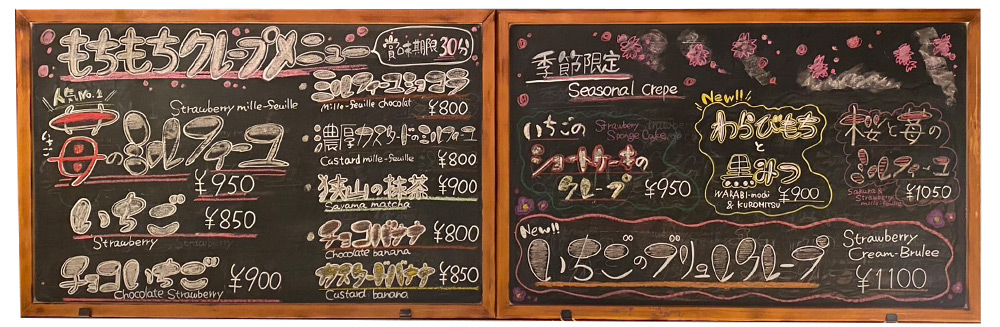 もちもちクレープメニュー
賞味期限30分
人気No.1
Strawberry mille-feuille
苺のミルフィーユ
¥950
いちご
¥850
Strawberry
チョコいちご
¥900
Chocolate Strawberry
ミルフィーユショコラ
Mille-feuille chocolat
¥800
濃厚カスタードのミルフィーユ
Custard mille-feuille
¥800
狭山の抹茶
¥900
Sayama matcha
チョコバナナ
¥800
Chocolate banana
カスタードバナナ
¥850
Custard banana
季節限定
Seasonal Crepe
いちごの
Strawberry
Sponge Cake
ショートケーキの
クレープ
¥950
New!!
わらびもち
と
黒みつ
WARABI-mochi
& KUROMITSU
¥900
桜と苺の
ミルフィーユ
Sakura &
Strawberry
mille-feuille
¥1050
New!!
いちごのブリュレクレープ
Strawberry
Cream-Brulee
¥1100